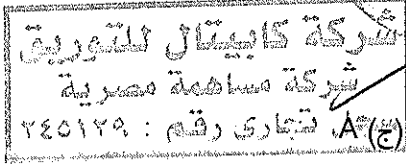 شركة كابيتال للتوريق
شركة مساهمة مصرية
سجل تجارى رقم : ٢٤٥١٢٩
A (ج)